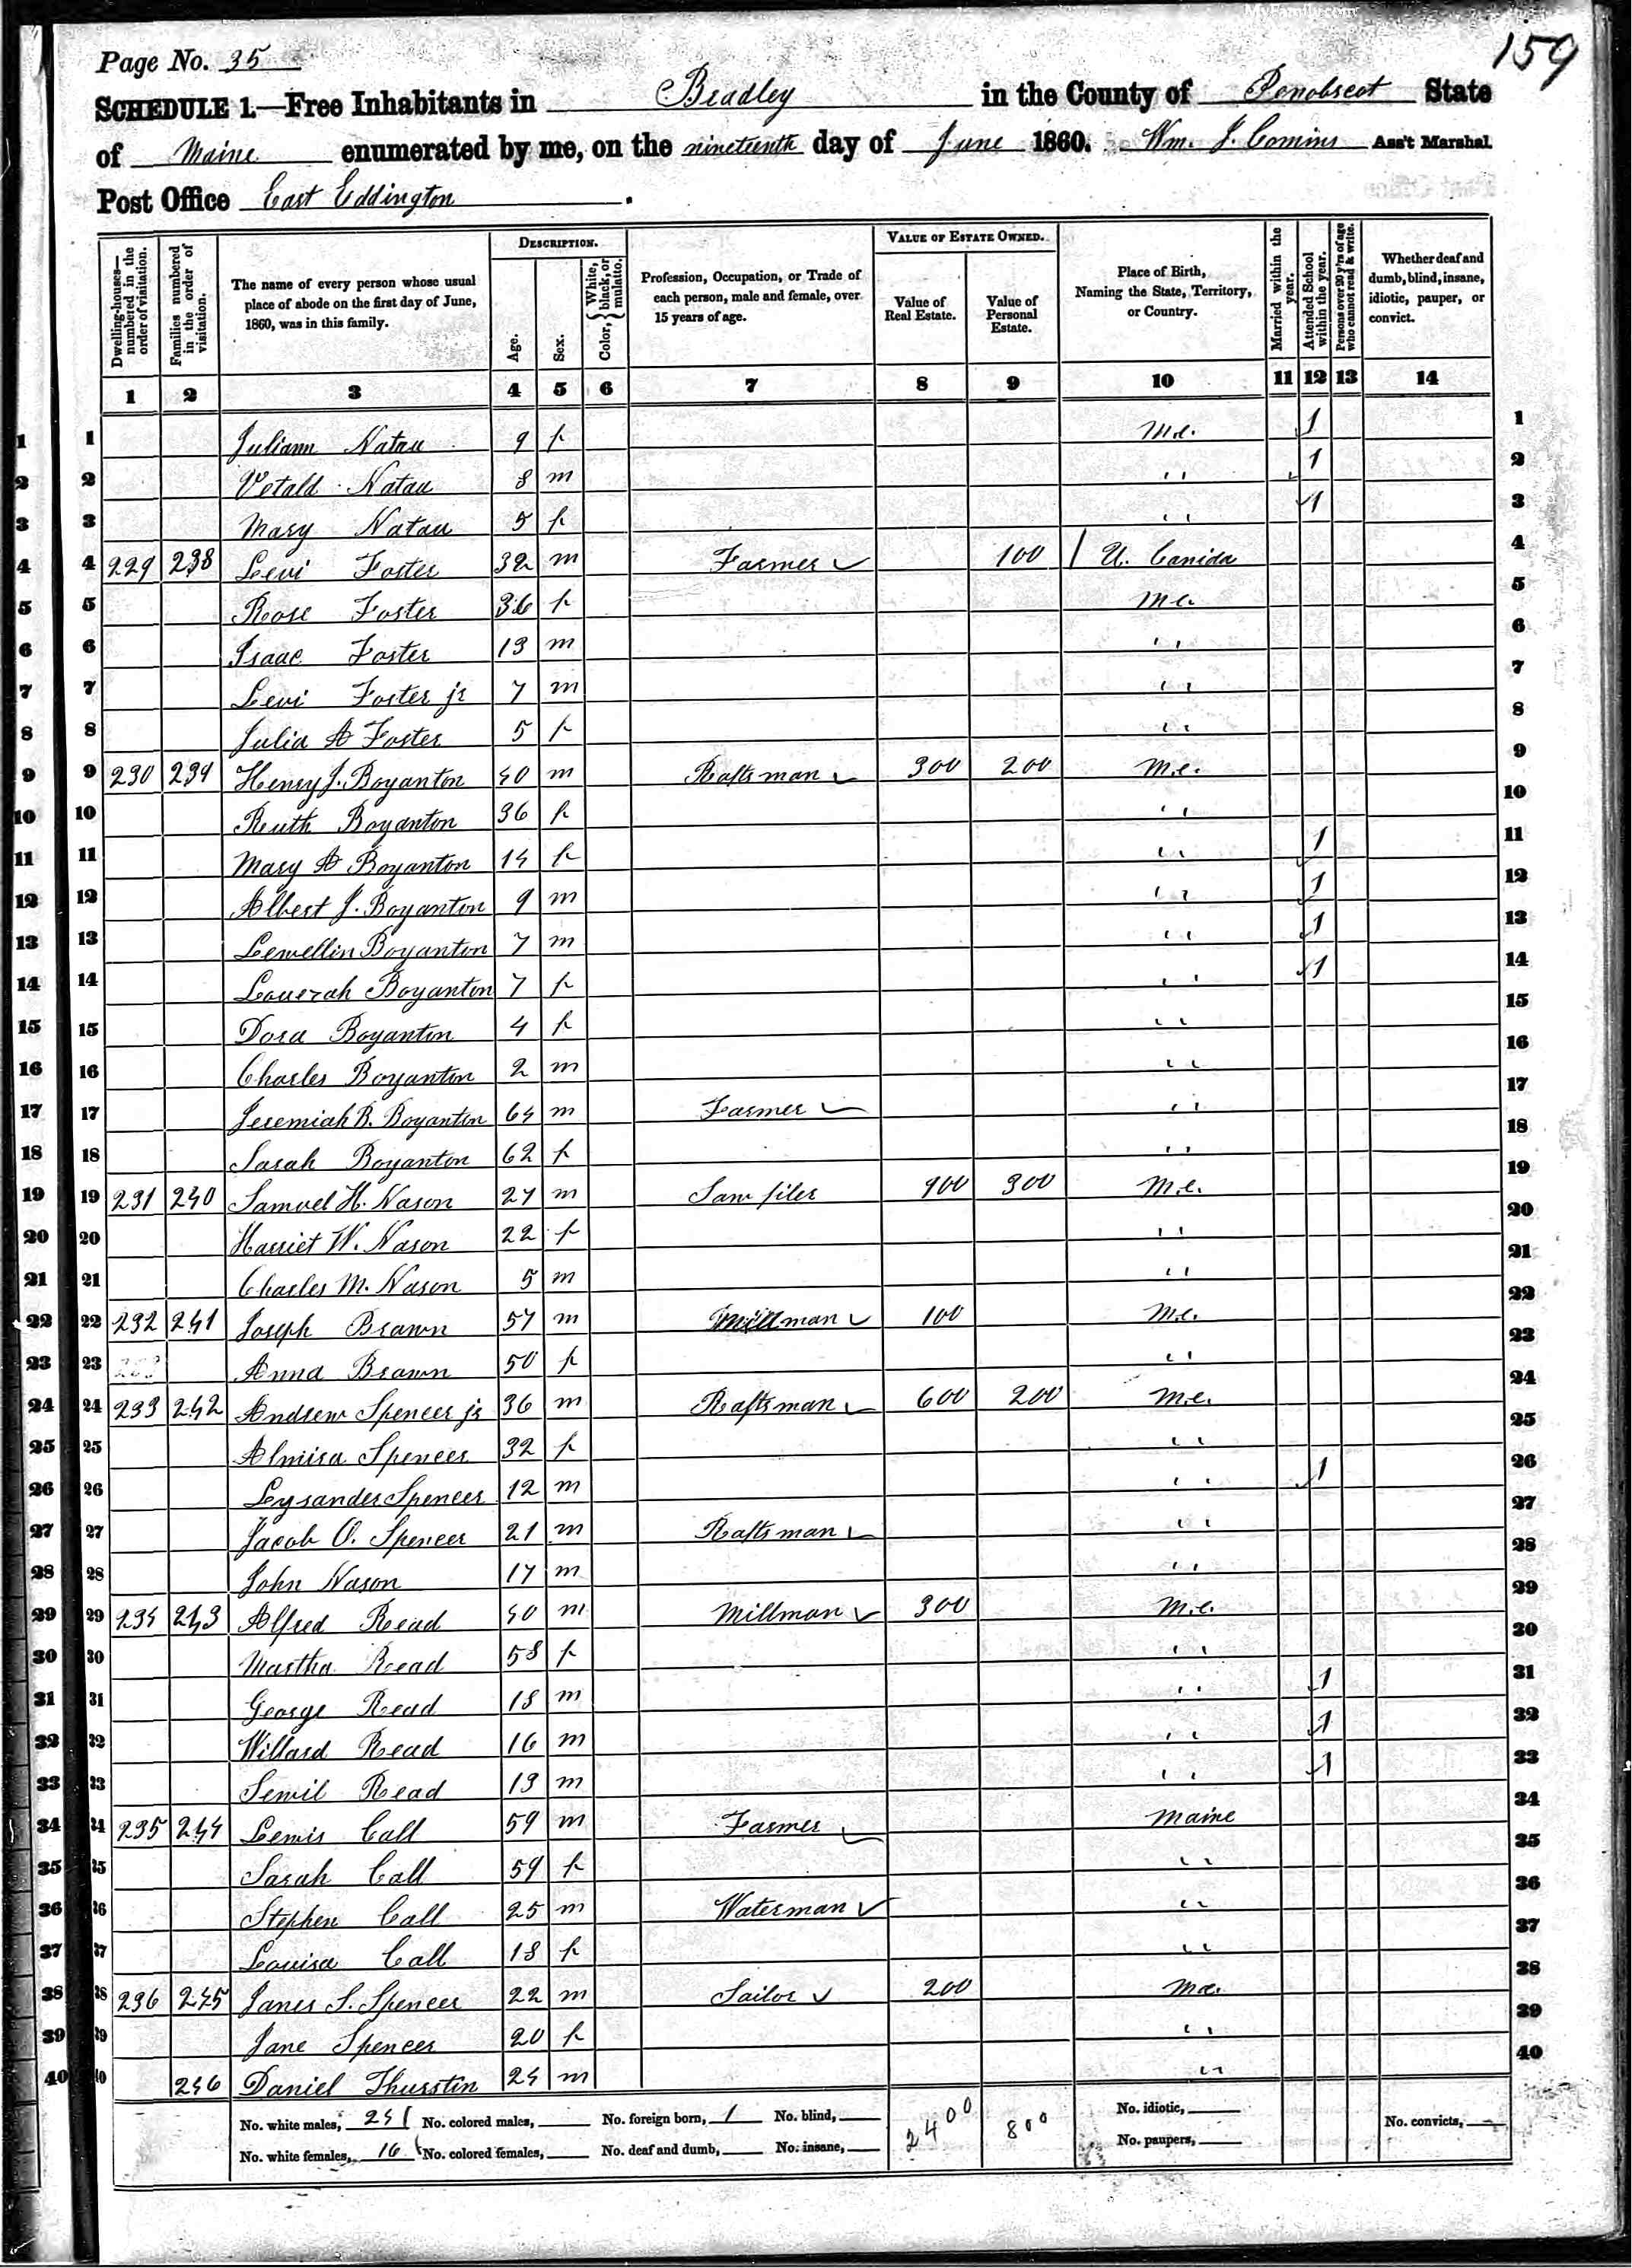 MyFamily.com
159
Page No. 35
SCHEDULE 1.—Free Inhabitants in Bradley in the County of Penobscot State
of Maine enumerated by me, on the nineteenth day of June 1860. Wm. J. Comins Ass't Marshal.
Post Office East Eddington.
Dwelling-houses—numbered in the order of visitation. Families numbered in the order of visitation. The name of every person whose usual place of abode on the first day of June, 1860, was in this family. DESCRIPTION. Age. Sex. Color, {White, black, or mulatto. Profession, Occupation, or Trade of each person, male and female, over 15 years of age. VALUE OF ESTATE OWNED. Value of Real Estate. Value of Personal Estate. Place of Birth, Naming the State, Territory, or Country. Married within the year. Attended School within the year. Persons over 20 y'rs of age who cannot read & write. Whether deaf and dumb, blind, insane, idiotic, pauper, or convict.
1 2 3 4 5 6 7 8 9 10 11 12 13 14
1 1 Juliann Natau 9 f Me. 1 1
2 2 Vetald Natau 8 m " 1 2
3 3 Mary Natau 5 f " 1 3
4 4 229 238 Levi Foster 32 m Farmer 100 / U. Canida 4
5 5 Rose Foster 36 f Me. 5
6 6 Isaac Foster 13 m " 6
7 7 Levi Foster jr 7 m " 7
8 8 Julia A Foster 5 f " 8
9 9 230 239 Henry J. Boyanton 40 m Raftsman 300 200 M.e. 9
10 10 Ruth Boyanton 36 f " 10
11 11 Mary A Boyanton 14 f " 1 11
12 12 Albert J. Boyanton 9 m " 1 12
13 13 Lewellin Boyanton 7 m " 1 13
14 14 Boyanton 7 f " 1 14
15 15 Dora Boyanton 4 f " 15
16 16 Charles Boyanton 2 m " 16
17 17 Jeremiah B. Boyanton 64 m Farmer " 17
18 18 Sarah Boyanton 62 f " 18
19 19 231 240 Samuel H. Nason 27 m Saw filer 900 300 M.e. 19
20 20 Harriet W. Nason 22 f " 20
21 21 Charles M. Nason 5 m " 21
22 22 232 241 Joseph Brawn 57 m Millman 100 M.e. 22
23 23 Anna Brawn 50 f " 23
24 24 233 242 Andrew Spencer jr 36 m Raftsman 600 200 M.e. 24
25 25 Almira Spencer 32 f " 25
26 26 Lysander Spencer 12 m " 1 26
27 27 Jacob O. Spencer 21 m Raftsman " 27
28 28 John Nason 17 m " 28
29 29 234 243 Alfred Read 40 m Millman 300 M.e. 29
30 30 Martha Read 38 f " 30
31 31 George Read 18 m " 1 31
32 32 Willard Read 16 m " 1 32
33 33 Read 13 m " 1 33
34 34 235 244 Lewis Call 59 m Farmer Maine 34
35 35 Sarah Call 59 f " 35
36 36 Stephen Call 25 m Waterman " 36
37 37 Louisa Call 18 f " 37
38 38 236 245 James S. Spencer 22 m Sailor 200 Me. 38
39 39 Jane Spencer 20 f " 39
40 40 246 Daniel Thurstin 24 m " 40
No. white males, 24 No. colored males, No. foreign born, 1 No. blind, 2400 800 No. idiotic, No. convicts,
No. white females, 16 No. colored females, No. deaf and dumb, No. insane, No. paupers,